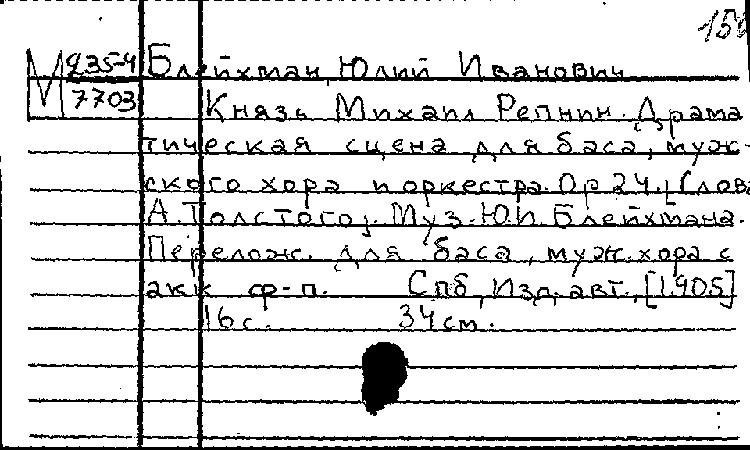 М 235-4 Блейхман, Юлий Иванович
7703 Князь Михаил Репнин. Драма
тическая сцена для баса, муж-
ского хора и оркестра. Op 24. [Слова
А. Толстого]. Муз. Ю.И. Блейхмана.
Перелож. для баса, муж. хора с
акк ф-п. Спб, Изд. авт., [1905]
16 с. 34 см.